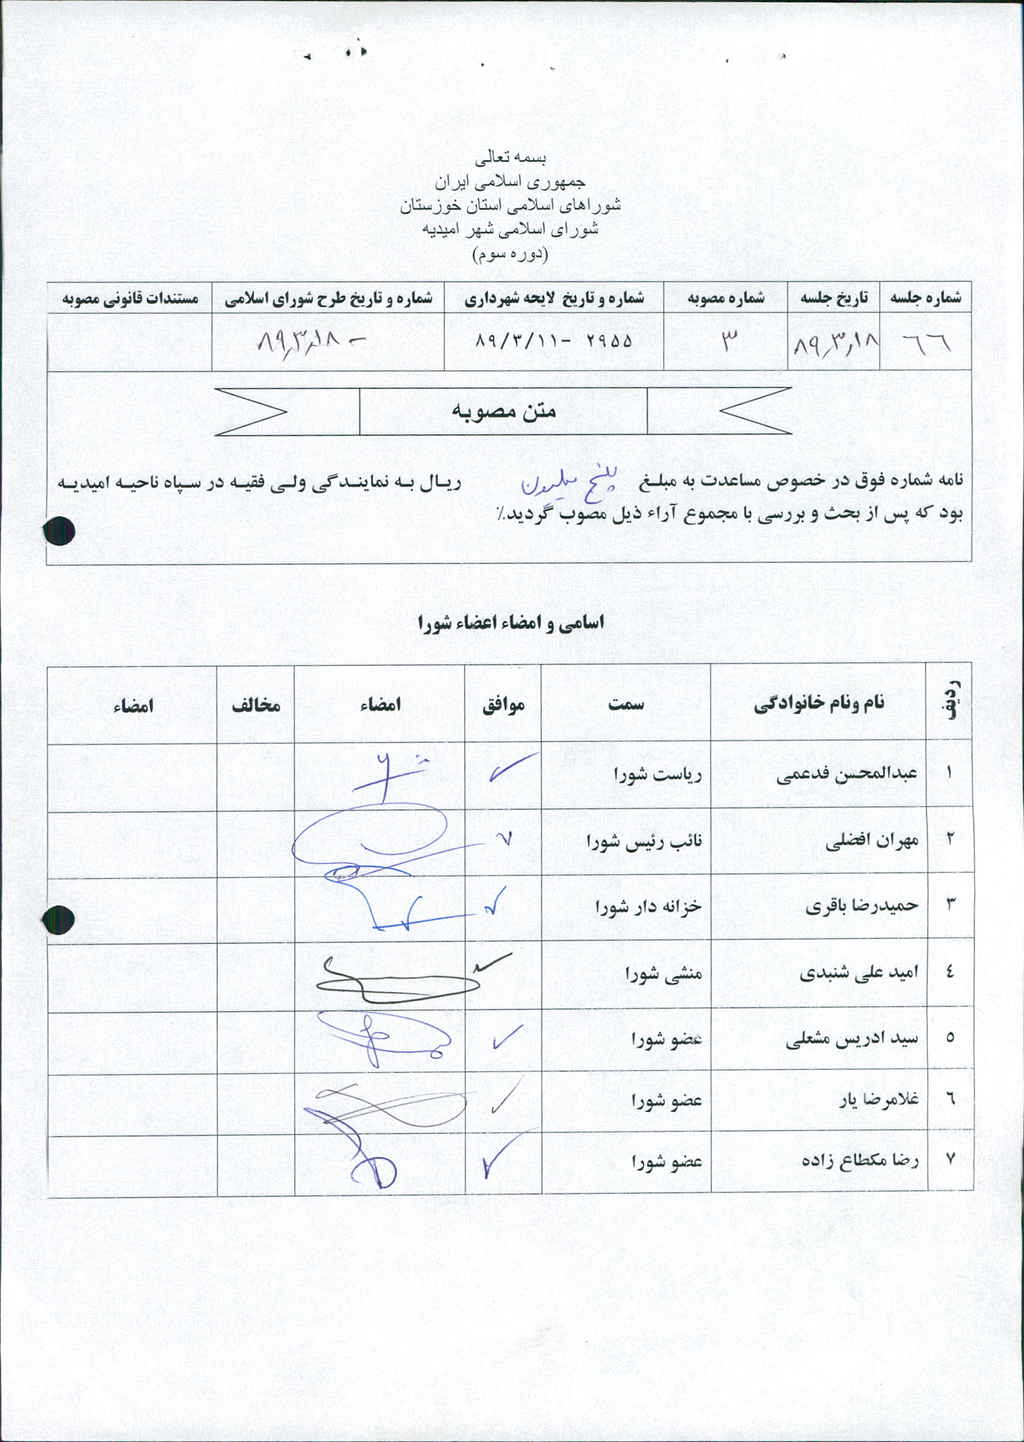 بسمه تعالی
جمهوری اسلامی ایران
شوراهای اسلامی استان خوزستان
شورای اسلامی شهر امیدیه
(دوره سوم)
شماره جلسه تاریخ جلسه شماره مصوبه شماره و تاریخ لایحه شهرداری شماره و تاریخ طرح شورای اسلامی مستندات قانونی مصوبه
۶۶ ۸۹,۳,۱۸ ۳ ۲۹۵۵ -۸۹/۳/۱۱ - ۸۹,۳,۱۸
متن مصوبه
نامه شماره فوق در خصوص مساعدت به مبلغ پنج میلیون ریال به نمایندگی ولی فقیه در سپاه ناحیه امیدیه
بود که پس از بحث و بررسی با مجموع آراء ذیل مصوب گردید.٪
اسامی و امضاء اعضاء شورا
ردیف نام ونام خانوادگی سمت موافق امضاء مخالف امضاء
۱ عبدالمحسن فدعمی ریاست شورا ✓
۲ مهران افضلی نائب رئیس شورا ✓
۳ حمیدرضا باقری خزانه دار شورا ✓
٤ امید علی شنبدی منشی شورا ✓
۵ سید ادریس مشعلی عضو شورا ✓
٦ غلامرضا یار عضو شورا ✓
۷ رضا مکطاع زاده عضو شورا ✓